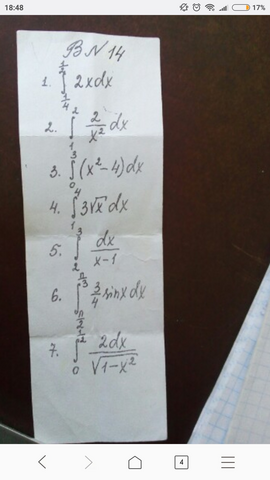 18:48 17%
В N 14
1. ∫_{1/4}^{1/2} 2xdx
2. ∫_1^2 2/x² dx
3. ∫_0^3 (x²-4)dx
4. ∫_1^4 3√x dx
5. ∫_2^3 dx/(x-1)
6. ∫_{π/2}^{π/3} 3/4 sinx dx
7. ∫_0^{1/2} 2dx/√(1-x²)
4